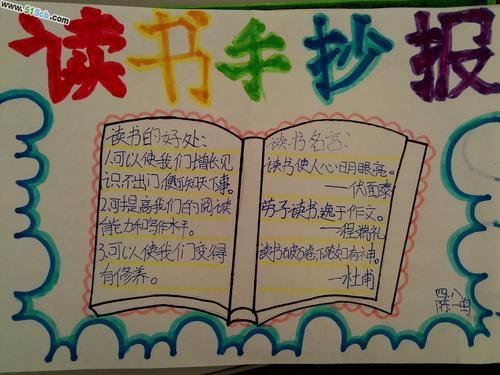 www.51Scb.com
读书手抄报
读书的好处:
1.可以使我们增长见
识,不出门,便可知天下事。
2.可提高我们的阅读
能力和写作水平。
3.可以使我们变得
有修养。
读书名言:
读书使人心明眼亮。
—伏尔泰
劳于读书,逸于作文。
—程端礼
读书破万卷,下笔如有神。
—杜甫
四八
陈一鸣